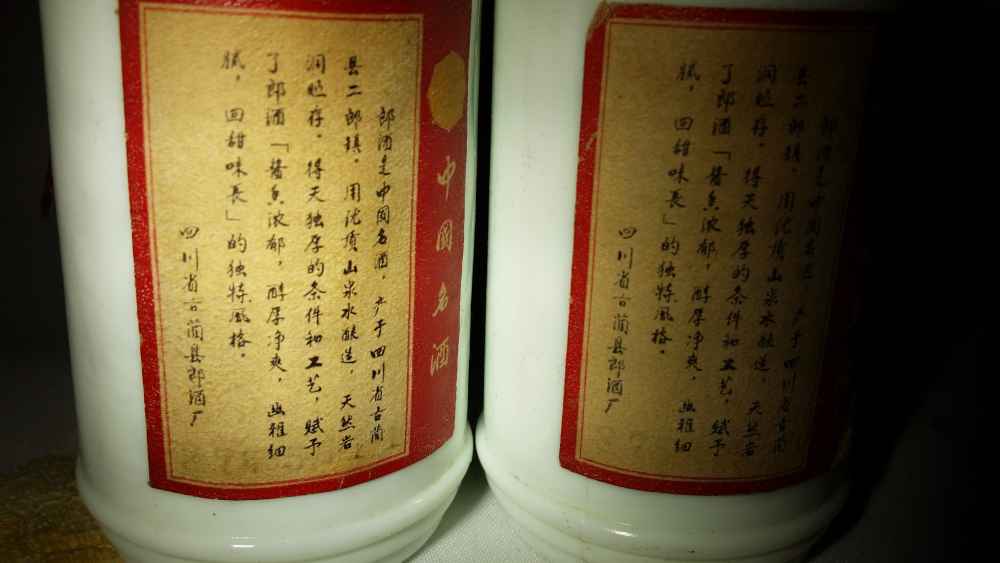 中國名酒
郎酒是中国名酒，产于四川省古蔺
县二郎镇，用沈贡山泉水酿造，天然岩
洞贮存。得天独厚的条件和工艺，赋予
了郎酒「酱香浓郁，醇厚净爽，幽雅细
腻，回甜味長」的独特風格。
四川省古蔺县郎酒厂
郎酒是中国名酒，产于四川省古蔺
县二郎镇，用沈贡山泉水酿造，天然岩
洞贮存。得天独厚的条件和工艺，赋予
了郎酒「酱香浓郁，醇厚净爽，幽雅细
腻，回甜味長」的独特風格。
四川省古蔺县郎酒厂